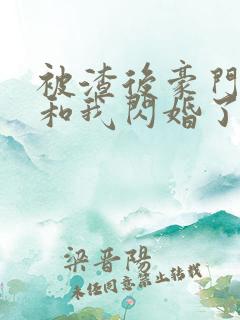 被渣後豪門
和我閃婚了
梁晋陽
未任同意禁止转载